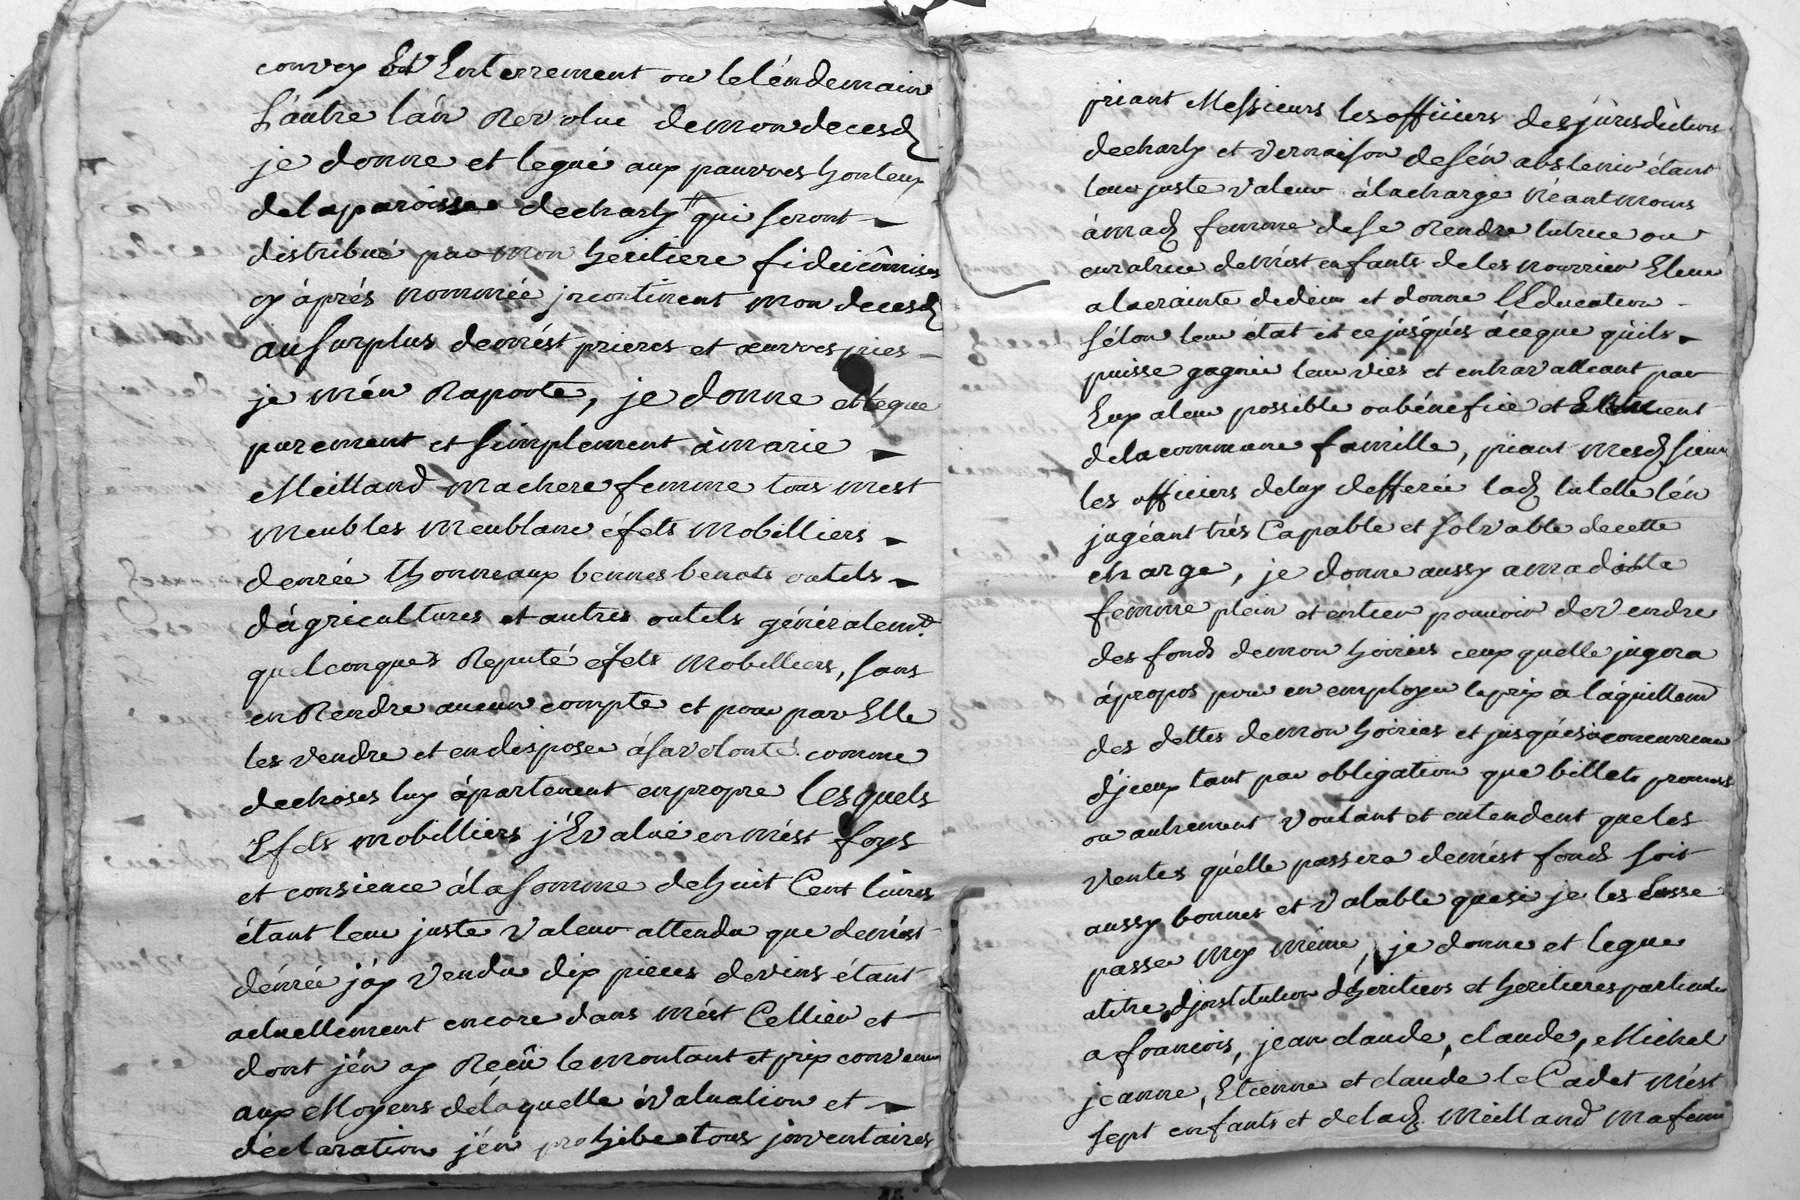 convoy Et Enterrement ou le léndemain
L'áutre l'án Revolue de mon decesd
je donne et legué aux pauvres honteux
de la paroisse de charly qui seront
distribué par mon heritiere fideicômise
cy áprés nommée jncontinent mon decesd
au surplus de mést prieres et oeuvres pies
je m'én Raporte, je donne et legue
purement et simplement à marie
Meilland ma chere femme tous mest
Meubles Meublanc éfets Mobilliers
denrée thonneaux bennes benots outils
d'ágricultures et autres outils généralemt.
quelconques Reputé éfets Mobilliers, sans
en Rendre aucun compte et pour par Elle
les vendre et en disposer á sa volonté comme
de choses luy ápartenent en propre lesquels
Efets mobilliers j'Evalué en mést foys
et consience á la somme de huit Cent livres
étant leur juste Valeur attendu que de mést
dénrée j'áy vendu dix pieces de vins étant
actuellement encore dans mést Cellier et
dont j'én ay Reçû le montant et prix convenu
aux Moyens de láquelle évaluation et
déclaration j'én prohibe tous jnventaires
priant Messieurs les officiers des jurisdictions
de charly et vernaison de s'én abstenir étant
leur juste valeur á la charge Neantmoins
á mad femme de se Rendre tutrice ou
curatrice de mést enfants de les nourrir Elever
a la crainte de dieu et donner l'Education
sélon leur état et ce jusqués á ce que quils
puisse gagner leur viés et en travalleant par
Eux a leur possible ou bénefice et
de la commune famille, priant mesd sieurs
les officiers de luy defferer lad tutelle l'én
jugéant trés Capable et solvable de cette
charge, je donne aussy a ma ditte
femme plein et entier pouvoir de vendre
des fonds de mon hoiries ceux quelle jugera
á propos pour en employer le prix a láquittemt
des dettes de mon hoiries et jusqués a concurrence
d'jceux tant par obligation que billets promess
ou autrement voulant et entendent que les
Ventes qu'elle passera de mést fonds soit
aussy bonnes et valable que si je les usse
passer moy même, je donne et legue
a titre d'jnstitution d'héritiers et heritieres particulie
a francois, jean claude, claude, Michel
jeanne, Etienne et claude le Cadet mést
sept enfants et de lad Meilland ma femme